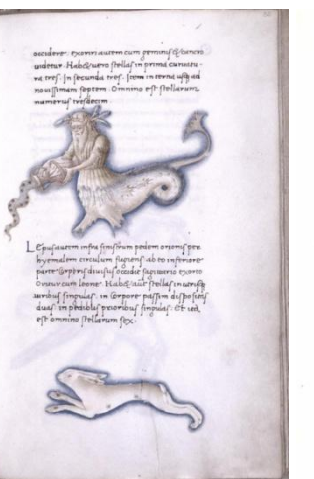 occidere. exoriri autem cum geminis & cancro
uidetur. Hab& uero stellas in prima curuatu-
ra tres. In secunda tres. Item in terna usq; ad
nouissimam septem. Omnino est stellarum
numerus tresdecim
Lepus autem infra sinistrum pedem orionis per
hyemalem circulum fugiens ab eo inferiore
parte corporis diuisus occidit sagittario exorto
Oritur cum leone. Hab& aut stellas in utrisq;
auribus singulas. in corpore passim dispositas
duas. in pedibus prioribus singulas. Et sed,
est omnino stellarum sex.